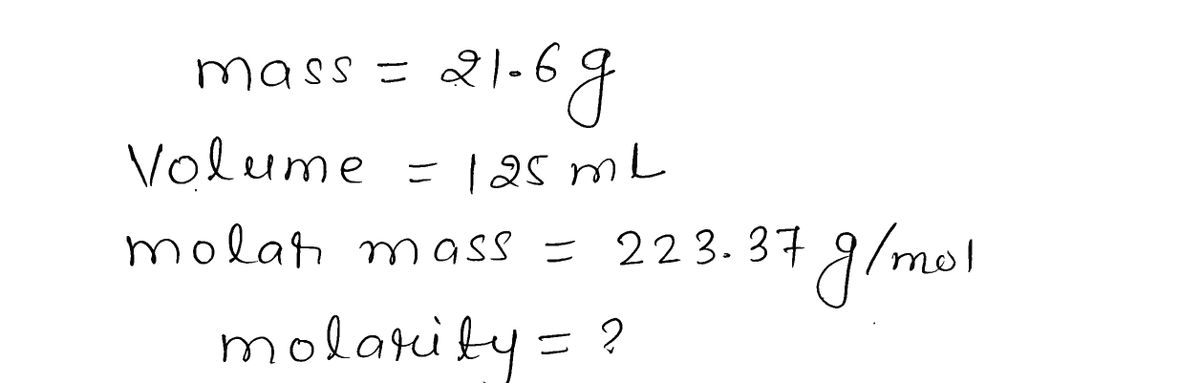 mass = 21.6 g
Volume = 125 mL
molar mass = 223.37 g/mol
molarity = ?